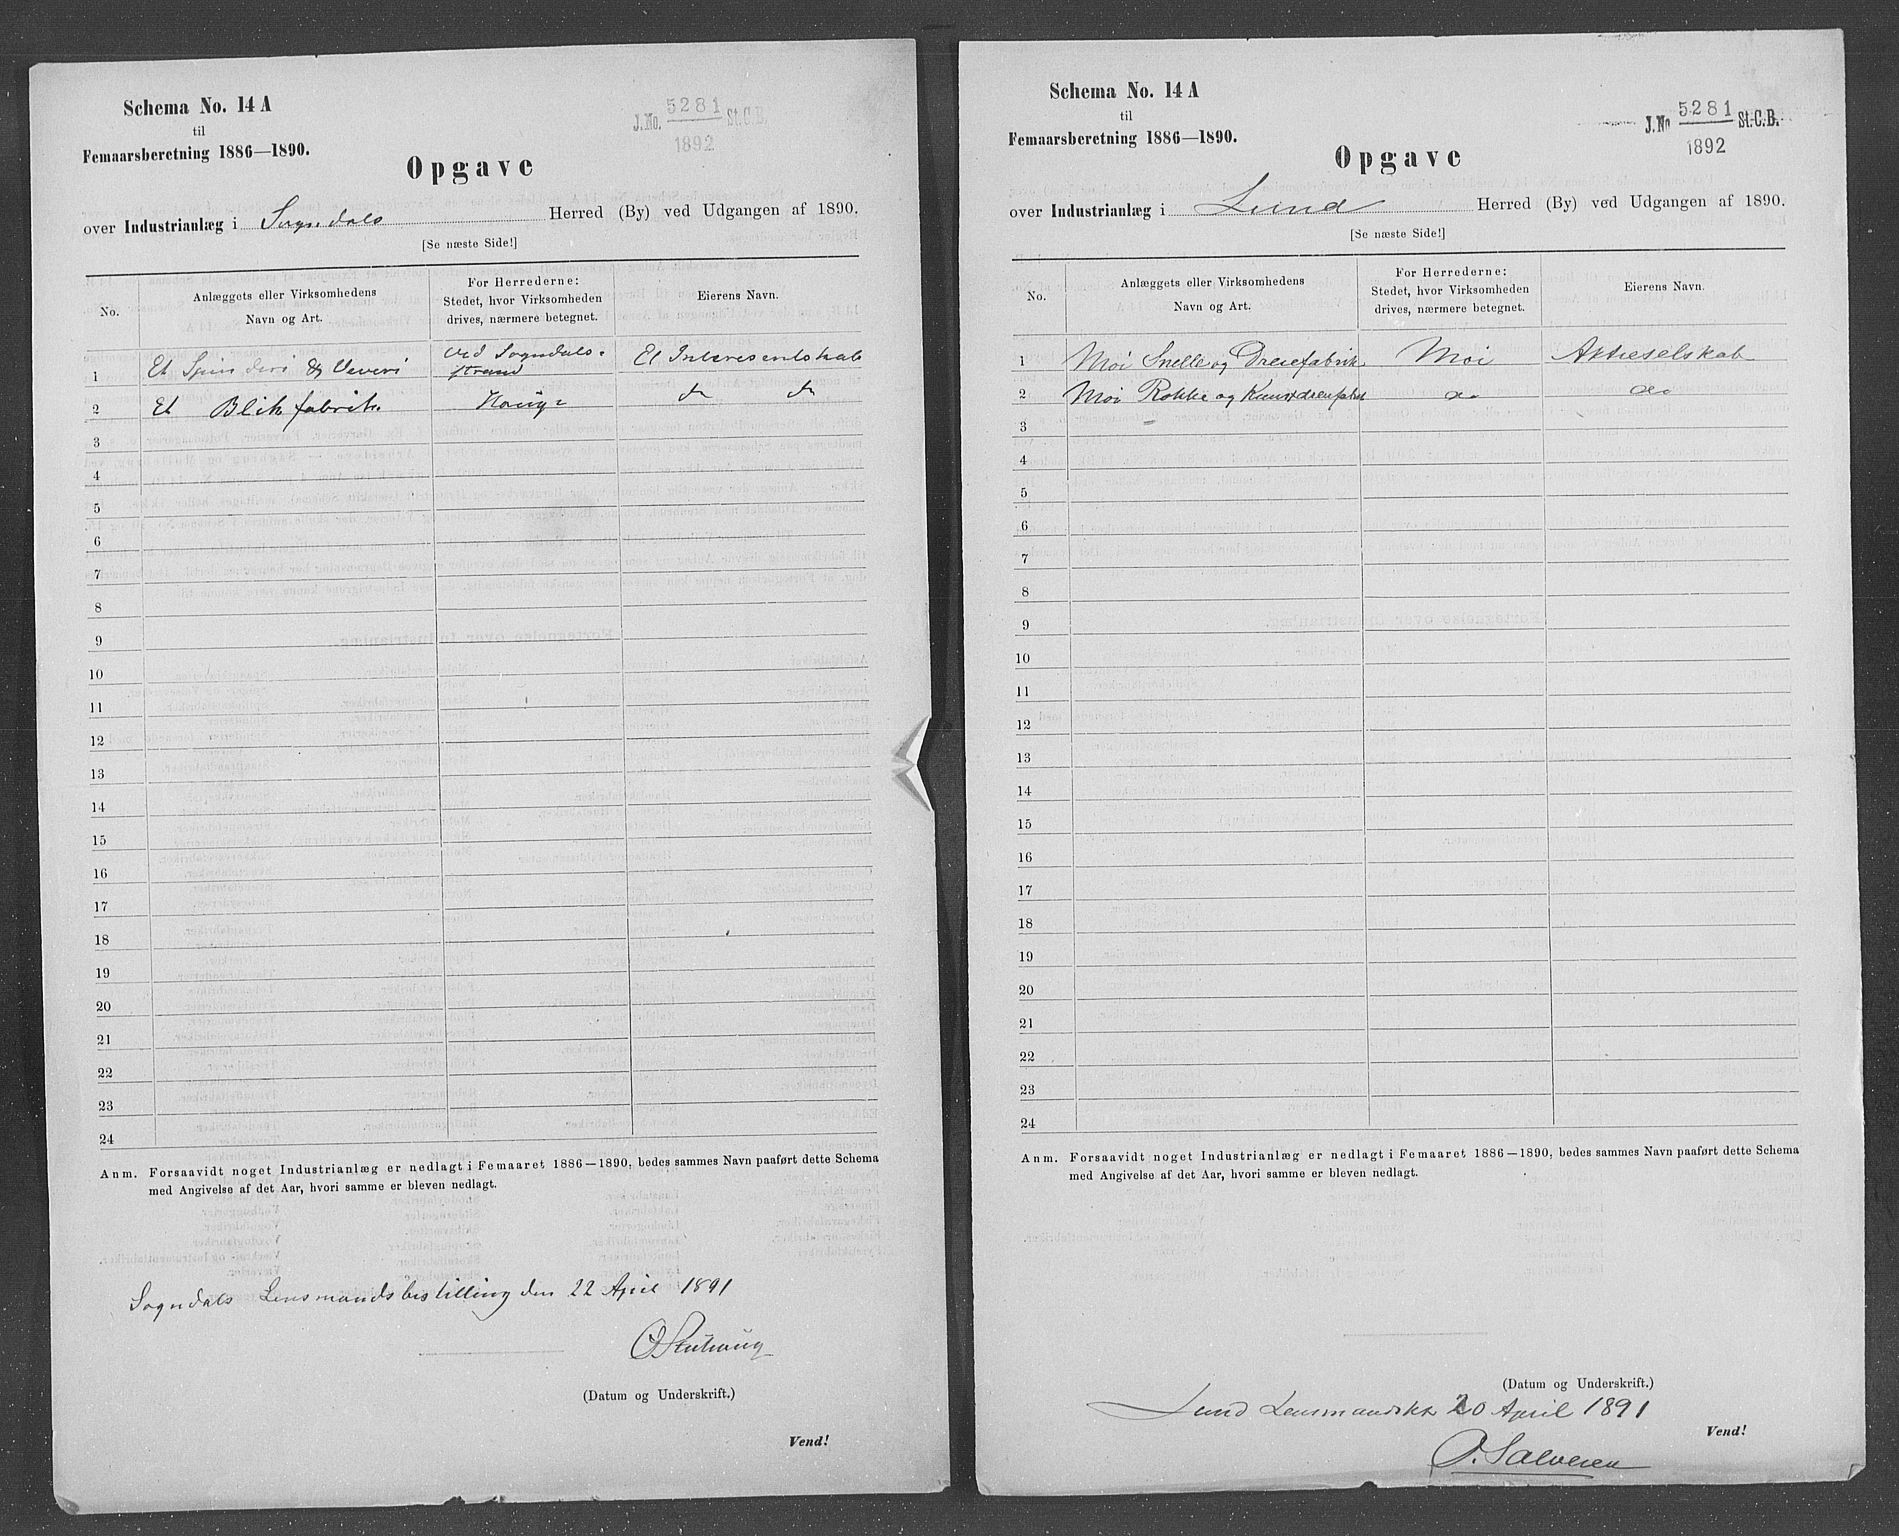 Schema No. 14 A
til
Femaarsberetning 1886—1890.
J.No. 5281 St.C.B.
1892
Opgave
over Industrianlæg i Sogndals Herred (By) ved Udgangen af 1890.
[Se næste Side!]
No.
Anlæggets eller Virksomhedens
Navn og Art.
For Herrederne:
Stedet, hvor Virksomheden
drives, nærmere betegnet.
Eierens Navn.
1 Et Spinderi & Veveri ved Sogndals- Et Interesentskab
strand
2 Et Blikfabrik. Hauge do do
3
4
5
6
7
8
9
10
11
12
13
14
15
16
17
18
19
20
21
22
23
24
Anm. Forsaavidt noget Industrianlæg er nedlagt i Femaaret 1886—1890, bedes sammes Navn paaført dette Schema
med Angivelse af det Aar, hvori samme er bleven nedlagt.
Sogndals Lensmandsbestilling den 22 April 1891
(Datum og Underskrift.)
Vend!
Schema No. 14 A
til
Femaarsberetning 1886—1890.
J.No 5281 St.C.B.
1892
Opgave
over Industrianlæg i Lund Herred (By) ved Udgangen af 1890.
[Se næste Side!]
No.
Anlæggets eller Virksomhedens
Navn og Art.
For Herrederne:
Stedet, hvor Virksomheden
drives, nærmere betegnet.
Eierens Navn.
1 Moi Snelle og Dreiefabrik Moi Aktieselskab
2 Moi Rokke og do do
3
4
5
6
7
8
9
10
11
12
13
14
15
16
17
18
19
20
21
22
23
24
Anm. Forsaavidt noget Industrianlæg er nedlagt i Femaaret 1886—1890, bedes sammes Navn paaført dette Schema
med Angivelse af det Aar, hvori samme er bleven nedlagt.
(Datum og Underskrift.)
Lund Lensmandskt 20 April 1891
Vend!
O. Salvesen